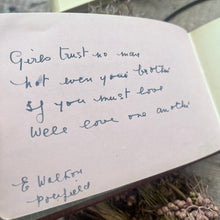 Girls trust no man
Not even your brother
If you must love
Well love one another
E Walton